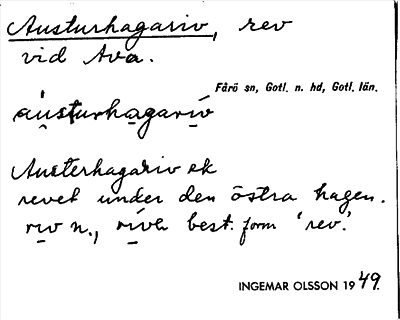 Austurhagariv, rev
vid Ava.
Fårö sn, Gotl. n. hd, Gotl. län.
áusturhagarív
Austerhagariv ek
revet under den östra hagen.
riv n., rívǝ best. form 'rev'.
INGEMAR OLSSON 1949.